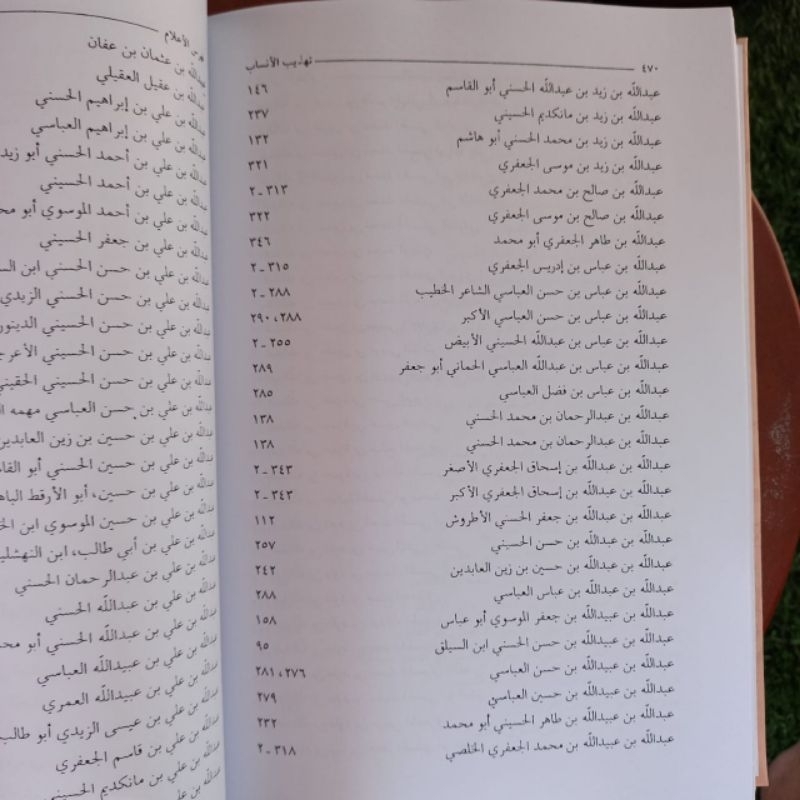 ٤٧٠ تهذيب الأنساب
عبداللّه بن زيد بن عبداللّه الحسني أبو القاسم ١٤٦
عبداللّه بن زيد بن مانكديم الحسيني ٢٣٧
عبداللّه بن زيد بن محمد الحسني أبو هاشم ١٣٢
عبداللّه بن زيد بن موسى الجعفري ٣٢١
عبداللّه بن صالح بن محمد الجعفري ٣١٣ ـ ٢
عبداللّه بن صالح بن موسى الجعفري ٣٢٢
عبداللّه بن طاهر الجعفري أبو محمد ٣٤٦
عبداللّه بن عباس بن إدريس الجعفري ٣١٥ ـ ٢
عبداللّه بن عباس بن حسن العباسي الشاعر الخطيب ٢٨٨ ـ ٢
عبداللّه بن عباس بن حسن العباسي الأكبر ٢٨٨، ٢٩٠
عبداللّه بن عباس بن عبداللّه الحسيني الأبيض ٢٥٥ ـ ٢
عبداللّه بن عباس بن عبداللّه العباسي الحماني أبو جعفر ٢٨٩
عبداللّه بن عباس بن فضل العباسي ٢٨٥
عبداللّه بن عبدالرحمان بن محمد الحسني ١٣٨
عبداللّه بن عبدالرحمان بن محمد الحسني ١٣٨
عبداللّه بن عبداللّه بن إسحاق الجعفري الأصغر ٣٤٣ ـ ٢
عبداللّه بن عبداللّه بن إسحاق الجعفري الأكبر ٣٤٣ ـ ٢
عبداللّه بن عبداللّه بن جعفر الحسني الأطروش ١١٢
عبداللّه بن عبداللّه بن حسن الحسيني ٢٥٧
عبداللّه بن عبداللّه بن حسين بن زين العابدين ٢٤٢
عبداللّه بن عبداللّه بن عباس العباسي ٢٨٨
عبداللّه بن عبيداللّه بن جعفر الموسوي أبو عباس ١٥٨
عبداللّه بن عبيداللّه بن حسن الحسني ابن السيلق ٩٥
عبداللّه بن عبيداللّه بن حسن العباسي ٢٧٦، ٢٨١
عبداللّه بن عبيداللّه بن حسين العباسي ٢٧٩
عبداللّه بن عبيداللّه بن طاهر الحسيني أبو محمد ٢٣٢
عبداللّه بن عبيداللّه بن محمد الجعفري الخلصي ٣١٨ ـ ٢
فهرس الأعلام
عبداللّه بن عثمان بن عفان
عبداللّه بن عقيل العقيلي
عبداللّه بن علي بن إبراهيم الحسني
عبداللّه بن علي بن إبراهيم العباسي
عبداللّه بن علي بن أحمد الحسني أبو زيد
عبداللّه بن علي بن أحمد الحسيني
عبداللّه بن علي بن أحمد الموسوي أبو
عبداللّه بن علي بن جعفر الحسيني
عبداللّه بن علي بن حسن الحسني ابن
عبداللّه بن علي بن حسن الحسني الزيدي
عبداللّه بن علي بن حسن الحسيني
عبداللّه بن علي بن حسن الحسيني
عبداللّه بن علي بن حسن الحسيني
عبداللّه بن علي بن حسن العباسي مهمه
عبداللّه بن علي بن حسين بن زين العابدين
عبداللّه بن علي بن حسين الحسني أبو
عبداللّه بن علي بن حسين، أبو الأرقط
عبداللّه بن علي بن حسين الموسوي ابن
عبداللّه بن علي بن أبي طالب، ابن
عبداللّه بن علي بن عبدالرحمان الحسني
عبداللّه بن علي بن عبداللّه الحسني
عبداللّه بن علي بن عبداللّه الحسني أبو
عبداللّه بن علي بن عبيداللّه العباسي
عبداللّه بن علي بن عبيداللّه العمري
عبداللّه بن علي بن عيسى الزيدي أبو طالب
عبداللّه بن علي بن قاسم الجعفري
عبداللّه بن علي بن مانكديم الحسيني